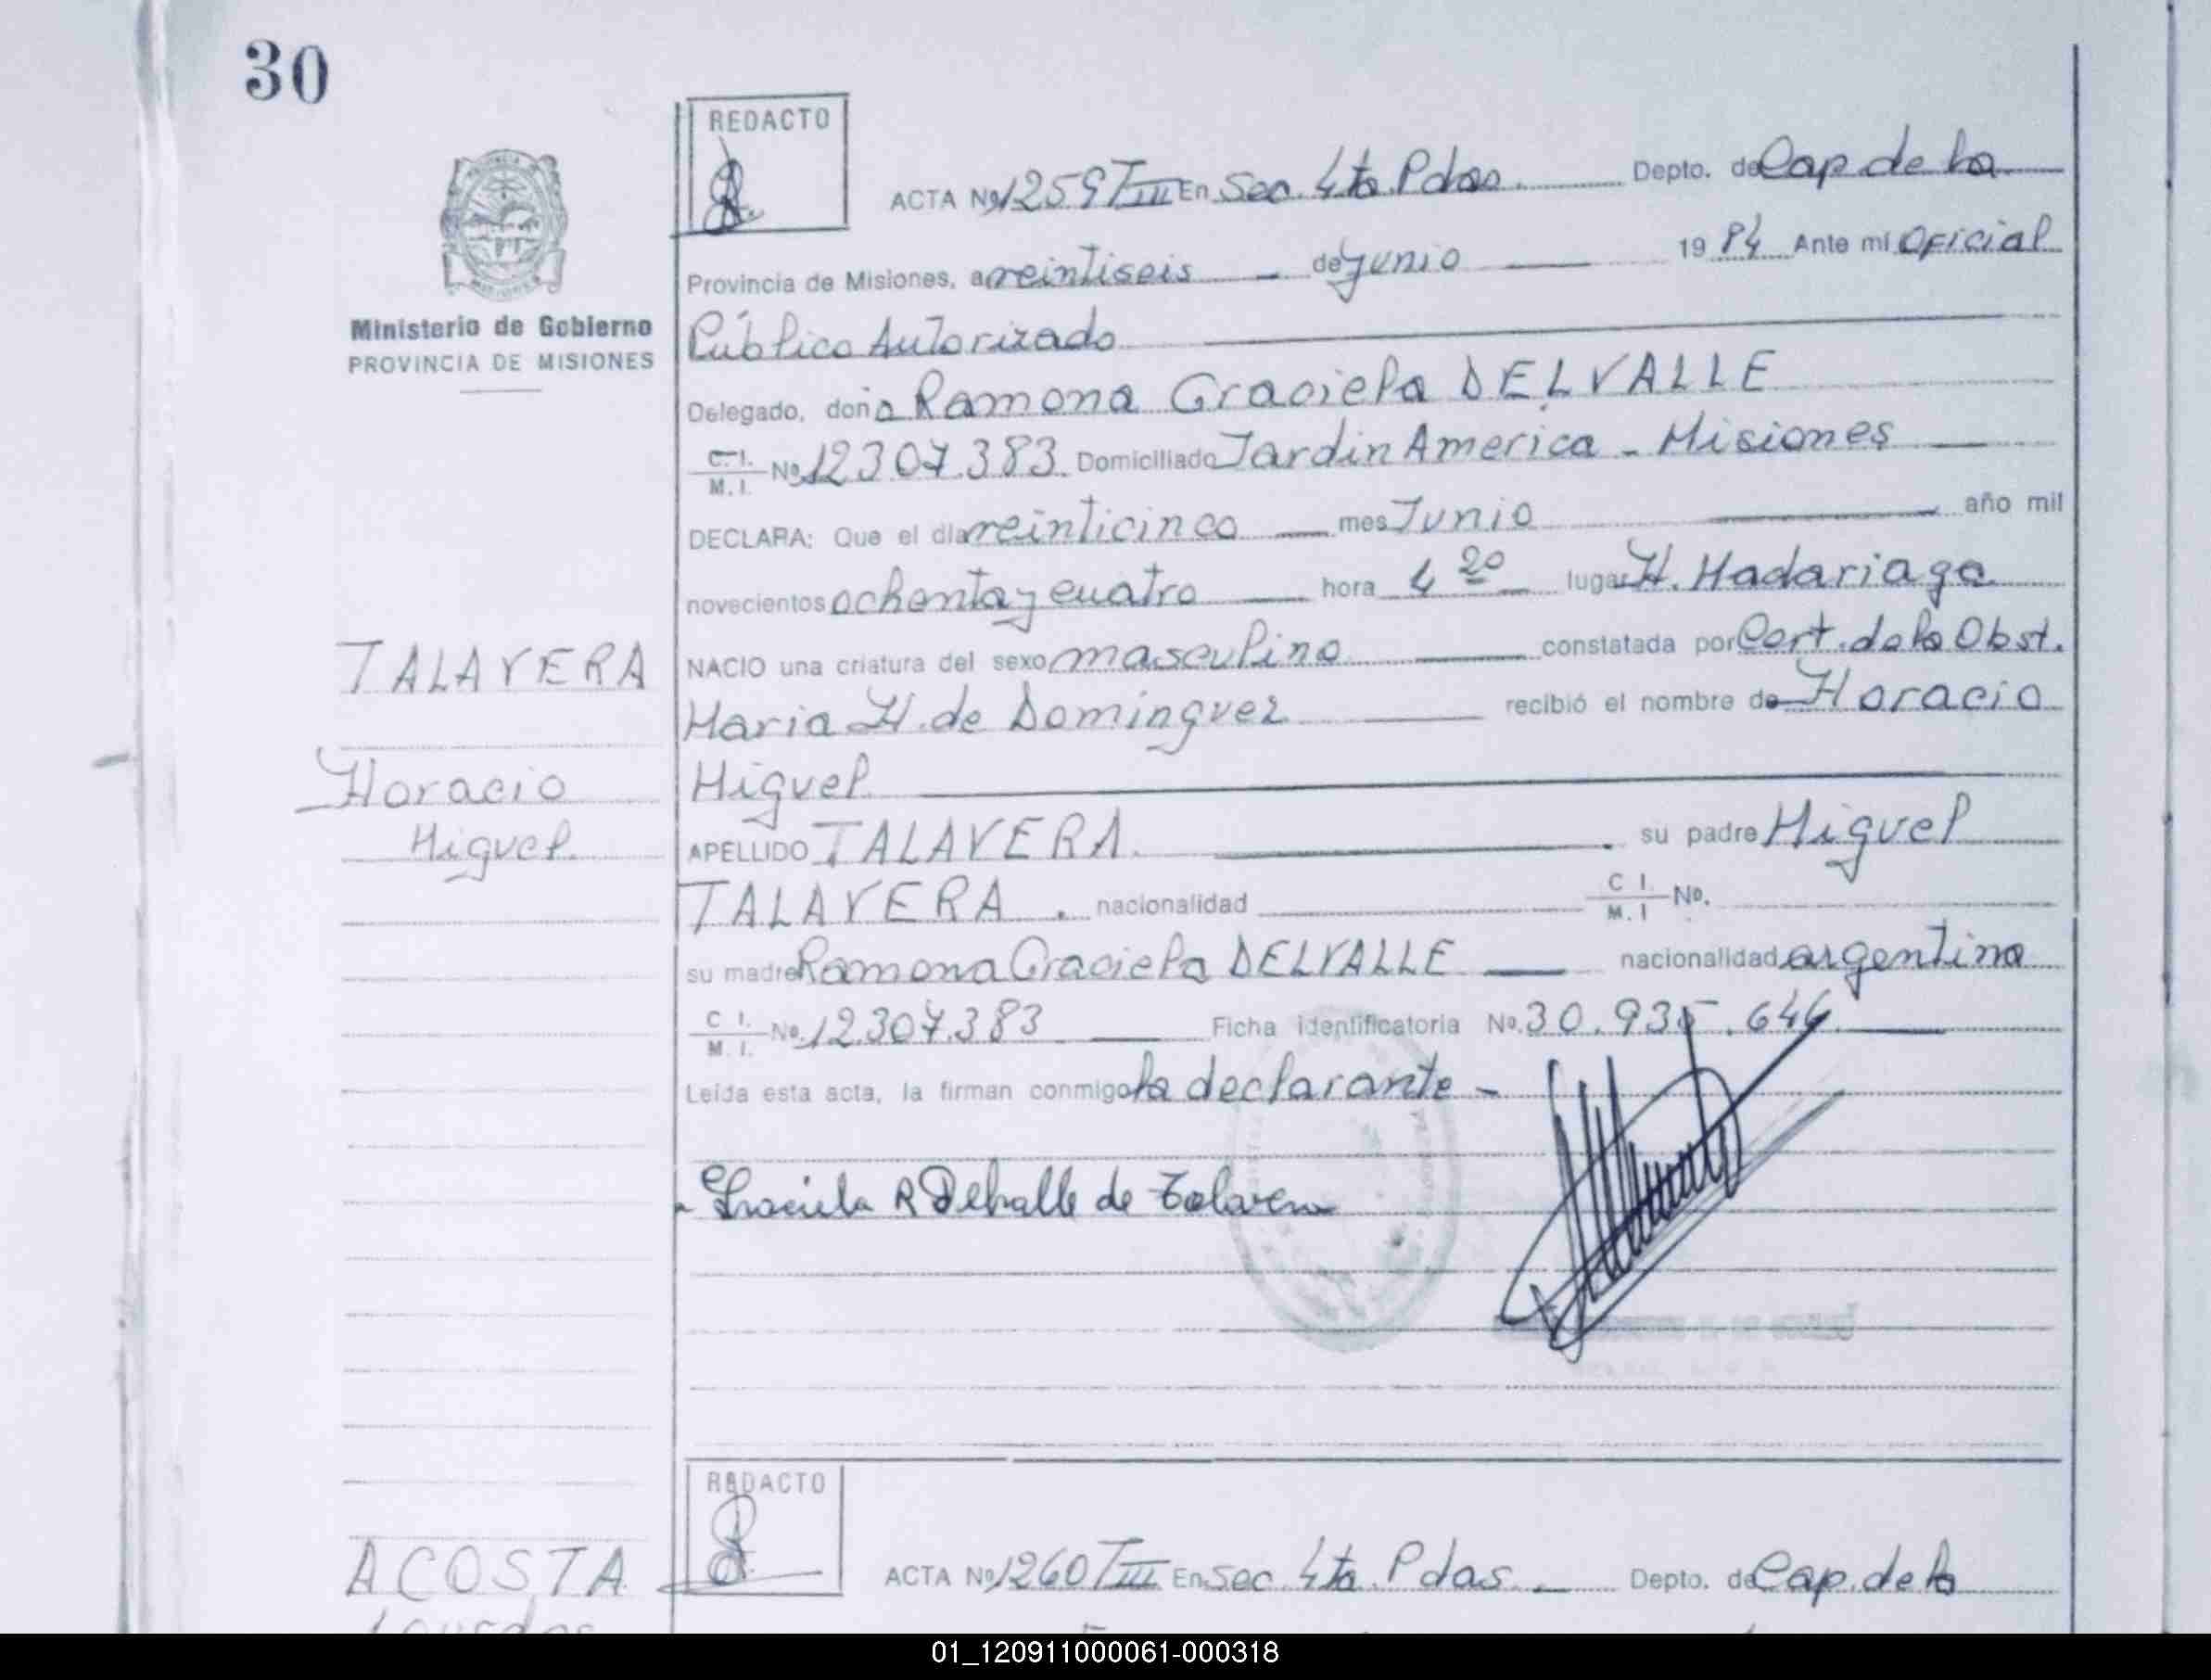 30
REDACTO
ACTA Nº 1259 T III En Sec. 4ta. Pdas. Depto. de Cap. de la
Provincia de Misiones, a veintiseis de junio 19 84 Ante mí Oficial
Ministerio de Gobierno
PROVINCIA DE MISIONES
Público Autorizado
Delegado, doña Ramona Graciela DELVALLE
C. I. M. I. Nº 12.307.383. Domiciliado Jardin America - Misiones
DECLARA: Que el día veinticinco mes Junio año mil
novecientos ochenta y cuatro hora 4 20 lugar H. Madariaga
TALAVERA
NACIO una criatura del sexo masculino constatada por Cert. de la Obst.
Maria H. de Dominguez recibió el nombre de Horacio
Horacio
Miguel
Miguel.
APELLIDO TALAVERA. su padre Miguel
TALAVERA. nacionalidad C I. M. I Nº.
su madre Ramona Graciela DELVALLE nacionalidad argentina
C I. M. I. Nº. 12.307.383 Ficha identificatoria Nº. 30.935.646.
Leída esta acta, la firman conmigo la declarante -
Graciela R Delvalle de Talavera
REDACTO
ACOSTA
ACTA Nº 1260 T III En Sec. 4ta. Pdas. Depto. de Cap. de la
Lourdes
01_120911000061-000318